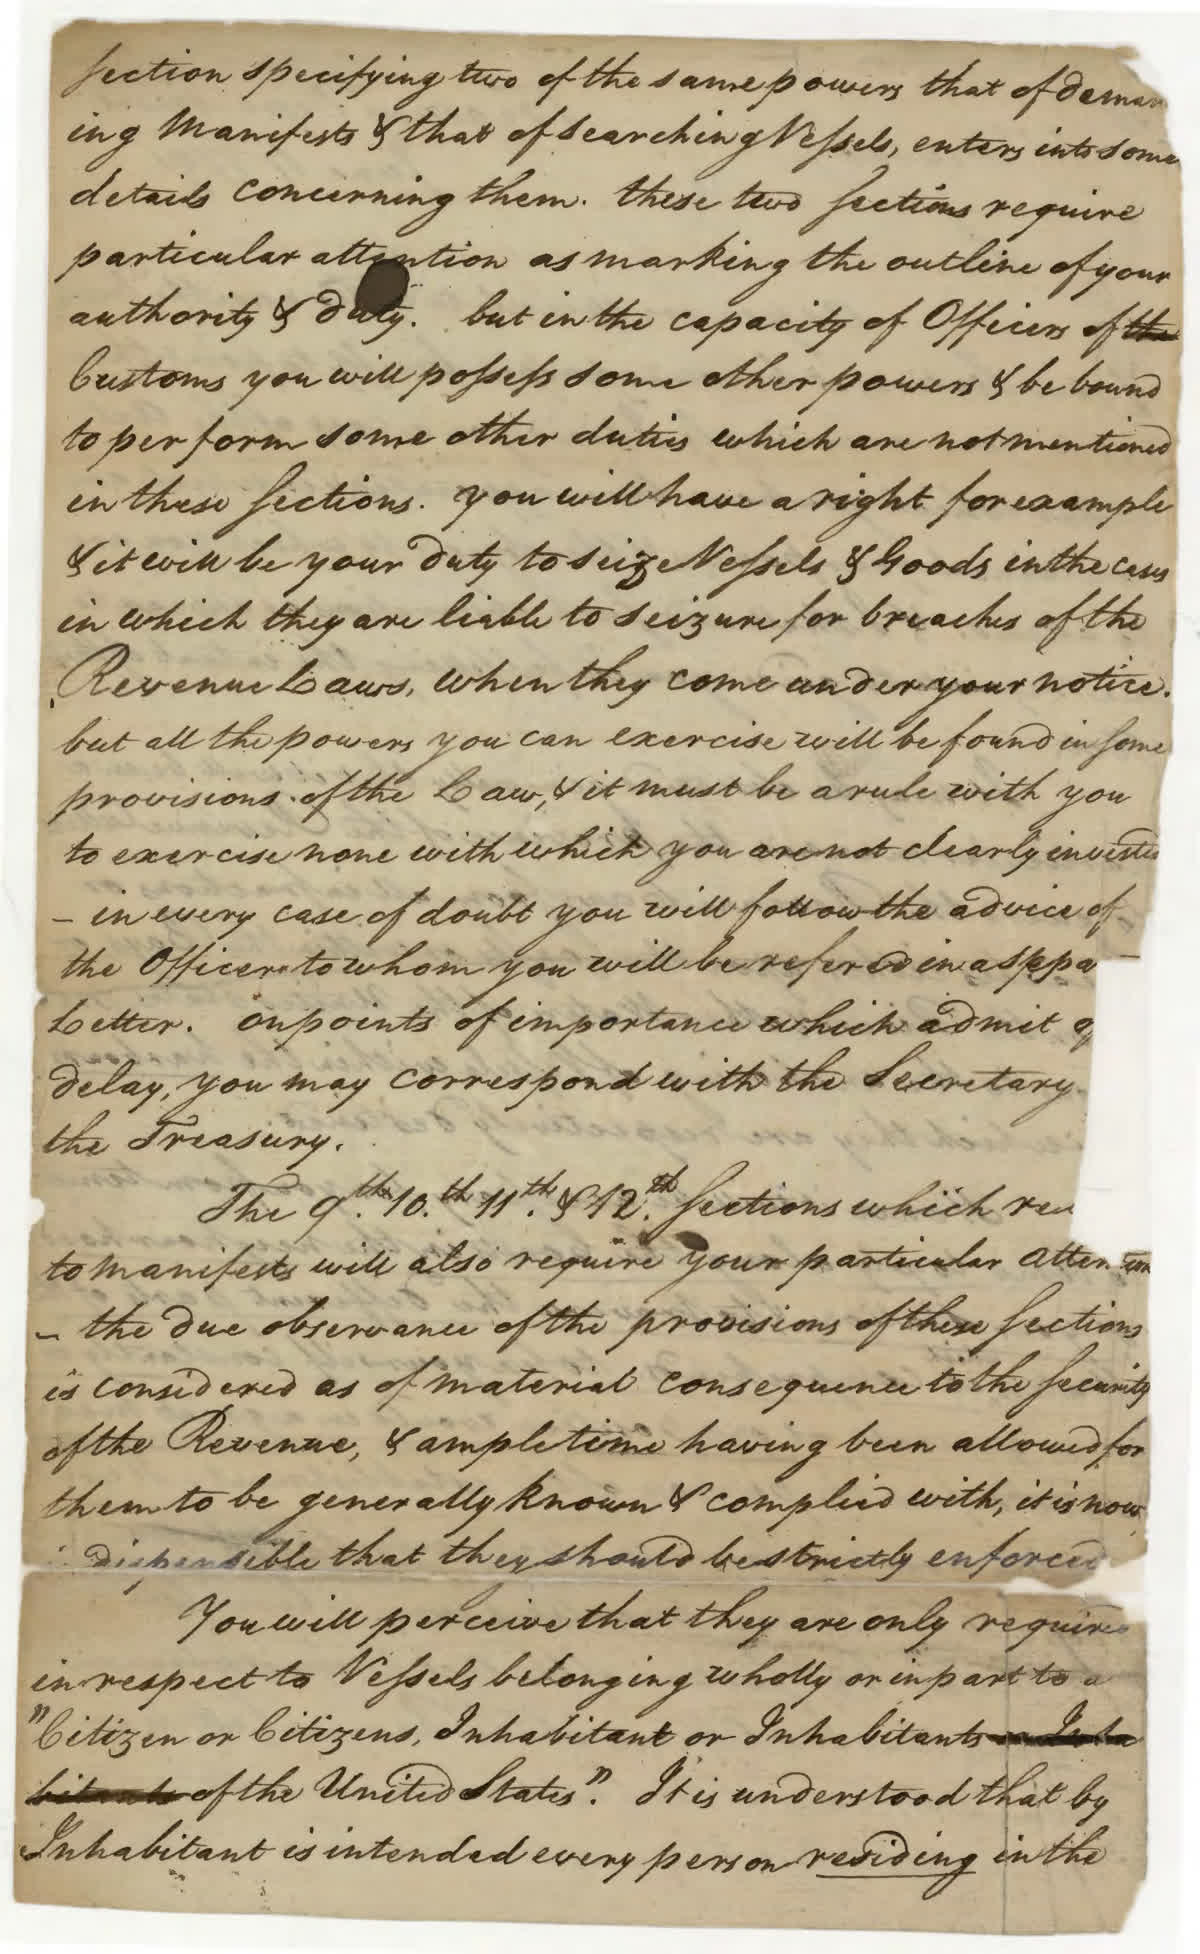 section specifying two of the same powers that of deman
ing Manifests & that of searching Vessels, enters into some
details concerning them. these two sections require
particular attention as marking the outline of your
authority & duty. but in the capacity of Officers of the
Customs you will possess some other powers & be bound
to perform some other duties which are not mentioned
in these sections. you will have a right for example
& it will be your duty to seize Vessels & Goods in the cases
in which they are liable to seizure for breaches of the
Revenue Laws, when they come under your notice.
but all the powers you can exercise will be found in some
provisions of the Law, & it must be a rule with you
to exercise none with which you are not clearly invested
- in every case of doubt you will follow the advice of
the Officer to whom you will be refered in a
Letter. on points of importance which admit of
delay, you may correspond with the Secretary
the Treasury.
The 9th. 10.th 11th. & 12.th sections which re
to manifests will also require your particular attention
- the due observance of the provisions of these sections
is considered as of material consequence to the security
of the Revenue, & ample time having been allowed for
them to be generally known & complied with, it is now
dispensible that they should be strictly enforced
You will perceive that they are only required
in respect to Vessels belonging wholly or in part to a
"Citizen or Citizens, Inhabitant or Inhabitants or Inha
bitants of the United States". It is understood that by
Inhabitant is intended every person residing in the